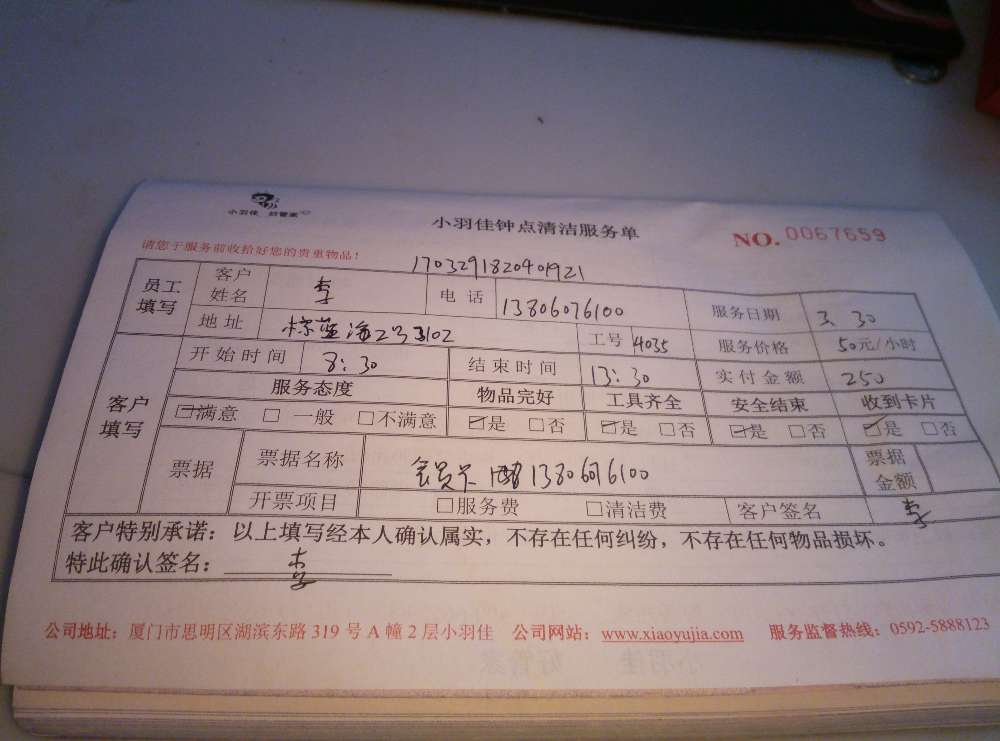 小羽佳 好管家
小羽佳钟点清洁服务单
NO. 0067659
请您于服务前收拾好您的贵重物品！
1703291820401921
员工填写 客户姓名 李 电话 13806076100 服务日期 3. 30
地址 棕蓝海2号3102 工号 4035 服务价格 50元/小时
客户填写 开始时间 8:30 结束时间 13:30 实付金额 250
服务态度 物品完好 工具齐全 安全结束 收到卡片
☑满意 □ 一般 □不满意 ☑是 □否 ☑是 □否 ☑是 □否 ☑是 □否
票据 票据名称 会员卡 13806076100 票据金额
开票项目 □服务费 □清洁费 客户签名 李
客户特别承诺：以上填写经本人确认属实，不存在任何纠纷，不存在任何物品损坏。
特此确认签名： 李
公司地址：厦门市思明区湖滨东路 319 号 A 幢 2 层小羽佳 公司网站：www.xiaoyujia.com 服务监督热线：0592-5888123